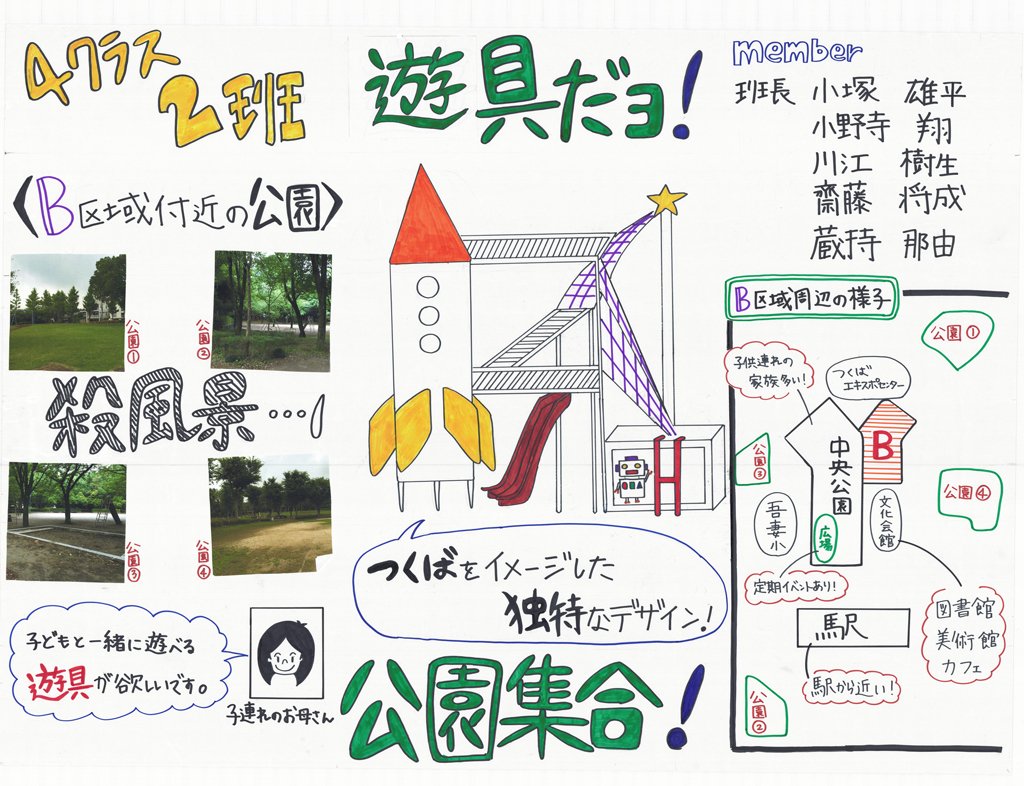 4クラス
2班
遊具だヨ!
member
班長 小塚 雄平
小野寺 翔
川江 樹生
齋藤 将成
蔵持 那由
〈B区域付近の公園〉
公園①
公園②
殺風景…!
公園③
公園④
子どもと一緒に遊べる
遊具が欲しいです。
子連れのお母さん
つくばをイメージした
独特なデザイン!
公園集合!
B区域周辺の様子
公園①
子供連れの
家族多い!
つくば
エキスポセンター
B
中央公園
公園③
公園④
吾妻小
広場
文化会館
定期イベントあり!
図書館
美術館
カフェ
駅
駅から近い!
公園②